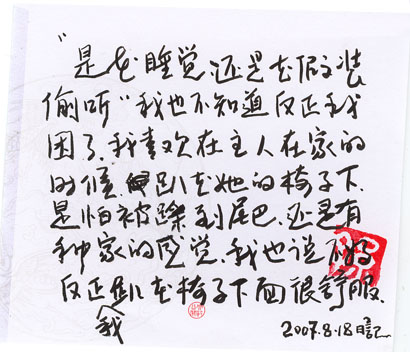 "是在睡觉、还是在假装
偷听"我也不知道反正我
困了、我喜欢在主人在家的
时候、趴在她的椅子下、
是怕被踩到尾巴、还是有
种家的感觉、我也说不好
反正我趴在椅子下面很舒服、
2007.8.18日记